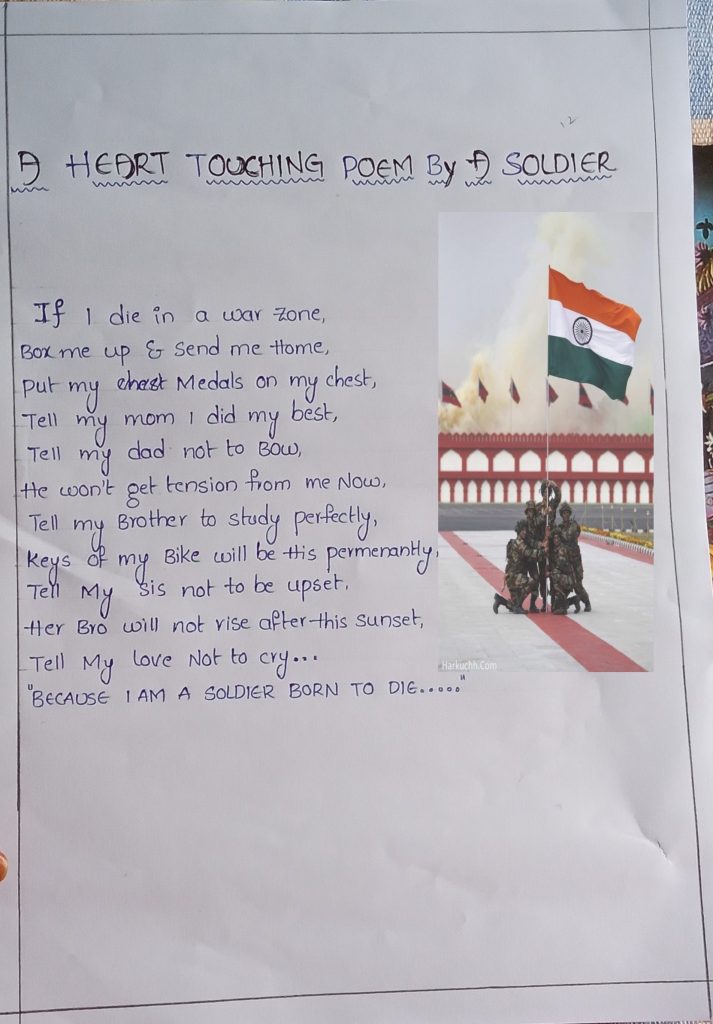 A HEART TOUCHING POEM By A SOLDIER
If I die in a war zone,
Box me up & Send me Home,
Put my chest Medals on my chest,
Tell my mom I did my best,
Tell my dad not to Bow,
He won't get tension from me Now,
Tell my Brother to study perfectly,
Keys of my Bike will be His permenantly,
Tell My sis not to be upset.
Her Bro will not rise after this sunset,
Tell My love Not to cry...
"BECAUSE I AM A SOLDIER BORN TO DIE....."
Harkuchh.Com